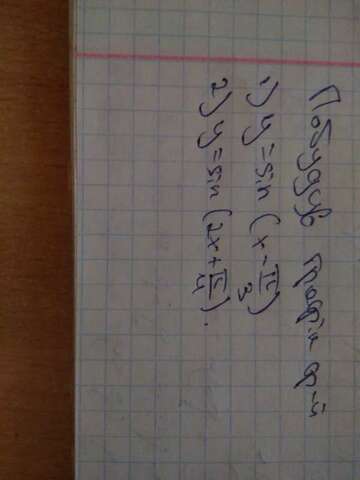 Побудув графік ф-ії
1) y = sin (x - π/3)
2) y = sin (2x + π/4).